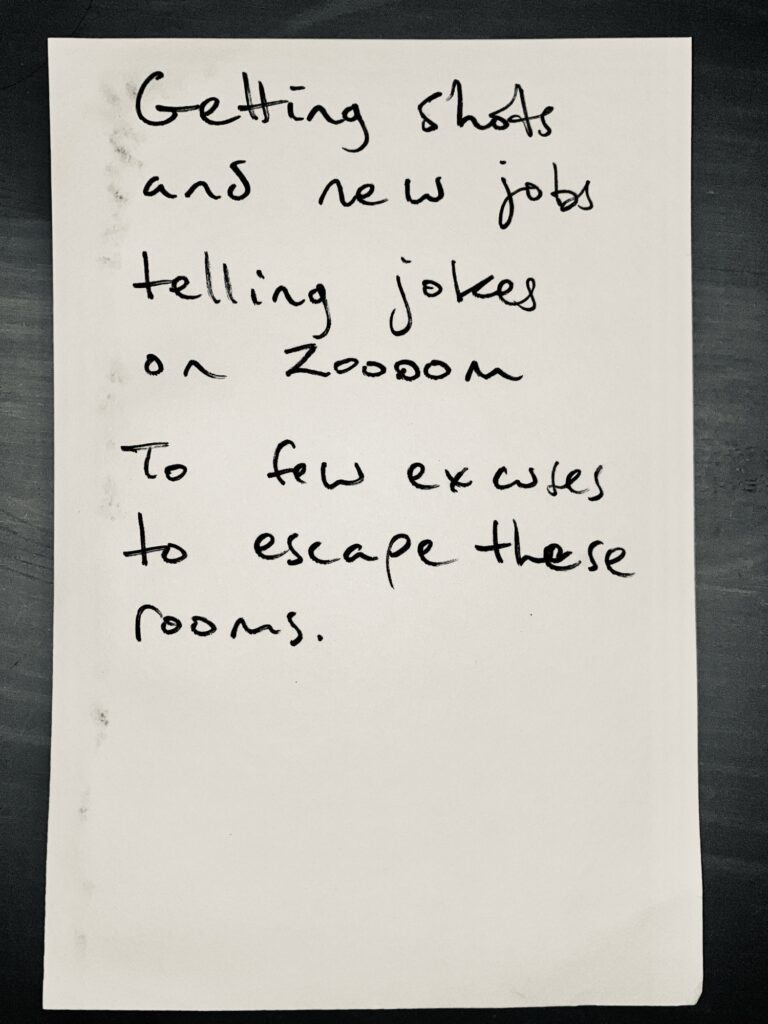 Getting shots
and new jobs
telling jokes
on Zoooom
To few excuses
to escape these
rooms.